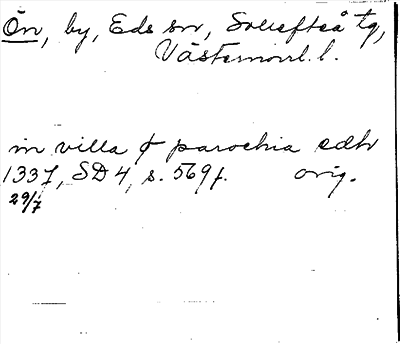 Ön, by, Eds sn, Sollefteå tg,
Västernorrl. l.
in villa & parochia edh
1337, SD 4, s. 569 f. orig.
29/7